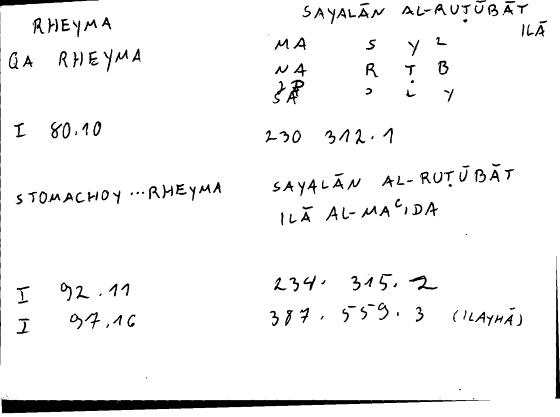 RHEYMA
SAYALĀN AL-RUṬŪBĀT
ILĀ
QA RHEYMA
MA S Y L
NA R Ṭ B
SA ʾ L Y
I 80.10
230 312.1
STOMACHOY ... RHEYMA
SAYALĀN AL-RUṬŪBĀT
ILĀ AL-MAʿIDA
I 92.11
234. 315. 2
I 97.16
387. 559. 3 (ILAYHĀ)